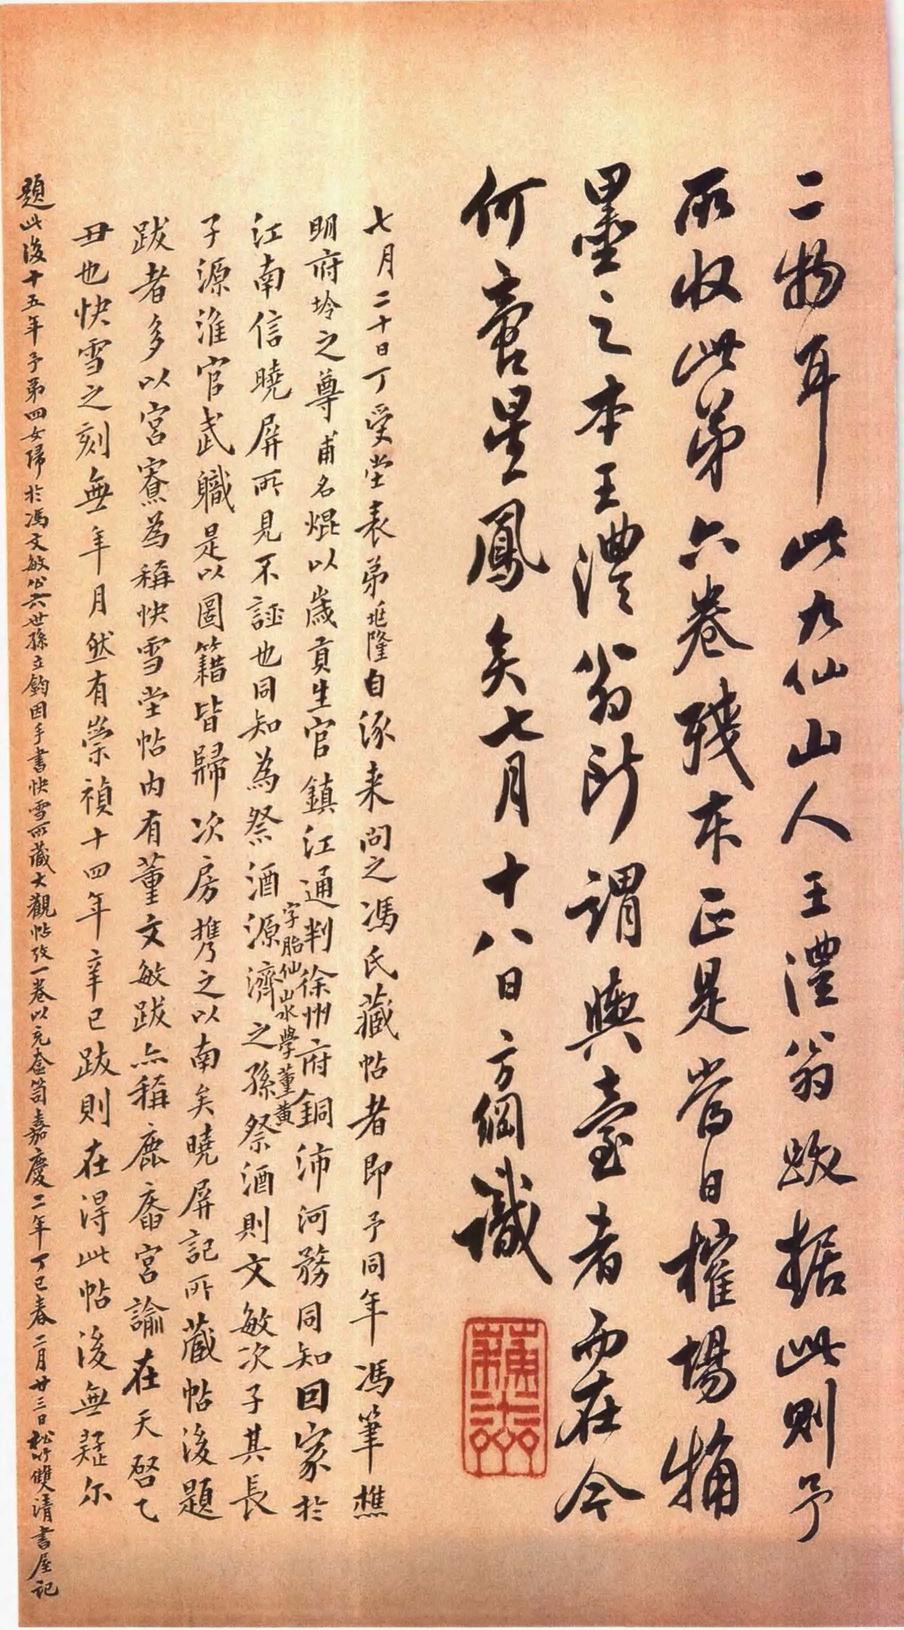 二物耳此九仙山人王澧翁跋據此則予
所收此第六卷殘本正是當日榷場殘
墨之本王澧翁所謂輿臺者而在今
何啻星鳳矣七月十八日方綱識
七月二十日丁受堂表弟埏隆自涿来問之馮氏藏帖者即予同年馮筆樵
明府坽之尊甫名焜以歲貢生官鎮江通判徐州府銅沛河務同知回家於
江南信曉屏所見不誣也同知為祭酒源濟字胎仙山水學董黃之孫祭酒則文敏次子其長
子源淮官武職是以圖籍皆歸次房攜之以南矣曉屏記所藏帖後題
跋者多以宮寮為稱快雪堂帖内有董文敏跋亦稱鹿菴宮諭在天啓乙
丑也快雪之刻無年月然有崇禎十四年辛巳跋則在得此帖後無疑尔
題此後十五年予第四女歸於馮文敏公六世孫立鈞因手書快雪所藏大觀帖攷一卷以充奩笥嘉慶二年丁巳春二月廿三日松竹雙清書屋記